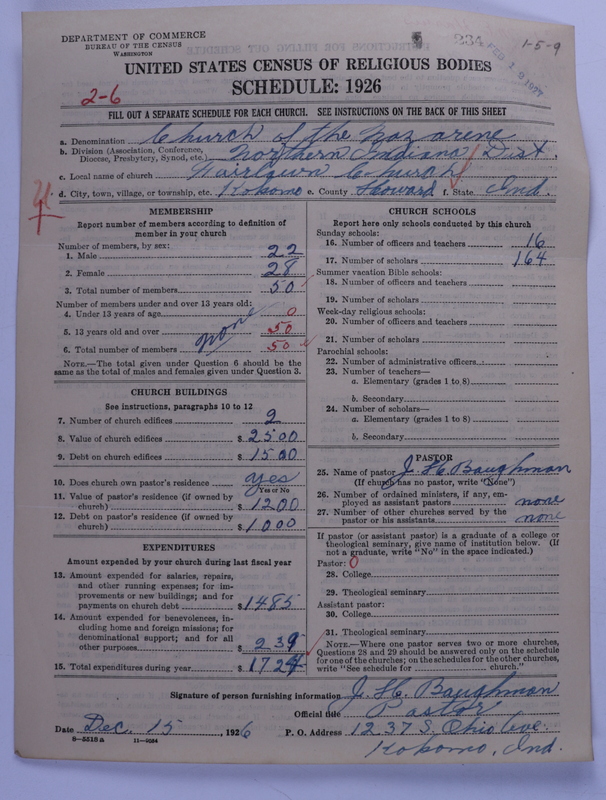 DEPARTMENT OF COMMERCE
BUREAU OF THE CENSUS
WASHINGTON
234
1-5-9
UNITED STATES CENSUS OF RELIGIOUS BODIES
SCHEDULE: 1926
2-6
FILL OUT A SEPARATE SCHEDULE FOR EACH CHURCH. SEE INSTRUCTIONS ON THE BACK OF THIS SHEET
a. Denomination Church of the Nazarene
b. Division (Association, Conference, Diocese, Presbytery, Synod, etc.) Northern Indiana Dist.
c. Local name of church Fairlawn Church
d. City, town, village, or township, etc. Kokomo e. County Howard f. State Ind.
MEMBERSHIP
Report number of members according to definition of member in your church
Number of members, by sex:
1. Male 22
2. Female 28
3. Total number of members 50
Number of members under and over 13 years old:
4. Under 13 years of age 0
5. 13 years old and over 50
6. Total number of members none 50
NOTE.—The total given under Question 6 should be the same as the total of males and females given under Question 3.
CHURCH BUILDINGS
See instructions, paragraphs 10 to 12
7. Number of church edifices 2
8. Value of church edifices $2500
9. Debt on church edifices $1500
10. Does church own pastor's residence yes
Yes or No
11. Value of pastor's residence (if owned by church) $1200
12. Debt on pastor's residence (if owned by church) $1000
EXPENDITURES
Amount expended by your church during last fiscal year
13. Amount expended for salaries, repairs, and other running expenses; for improvements or new buildings; and for payments on church debt $1485
14. Amount expended for benevolences, including home and foreign missions; for denominational support; and for all other purposes $239
15. Total expenditures during year $1724
CHURCH SCHOOLS
Report here only schools conducted by this church
Sunday schools:
16. Number of officers and teachers 16
17. Number of scholars 164
Summer vacation Bible schools:
18. Number of officers and teachers
19. Number of scholars
Week-day religious schools:
20. Number of officers and teachers
21. Number of scholars
Parochial schools:
22. Number of administrative officers
23. Number of teachers—
a. Elementary (grades 1 to 8)
b. Secondary
24. Number of scholars—
a. Elementary (grades 1 to 8)
b. Secondary
PASTOR
25. Name of pastor J. H. Baughman
(If church has no pastor, write "None")
26. Number of ordained ministers, if any, employed as assistant pastors none
27. Number of other churches served by the pastor or his assistants none
If pastor (or assistant pastor) is a graduate of a college or theological seminary, give name of institution below. (If not a graduate, write "No" in the space indicated.)
Pastor: 0
28. College
29. Theological seminary
Assistant pastor:
30. College
31. Theological seminary
NOTE.—Where one pastor serves two or more churches, Questions 28 and 29 should be answered only on the schedule for one of the churches; on the schedules for the other churches, write "See schedule for church."
Signature of person furnishing information J. H. Baughman
Official title Pastor
Date Dec. 15, 1926 P. O. Address 1237 S. Ohio Ave.
8-5518a 11-9034 Kokomo, Ind.